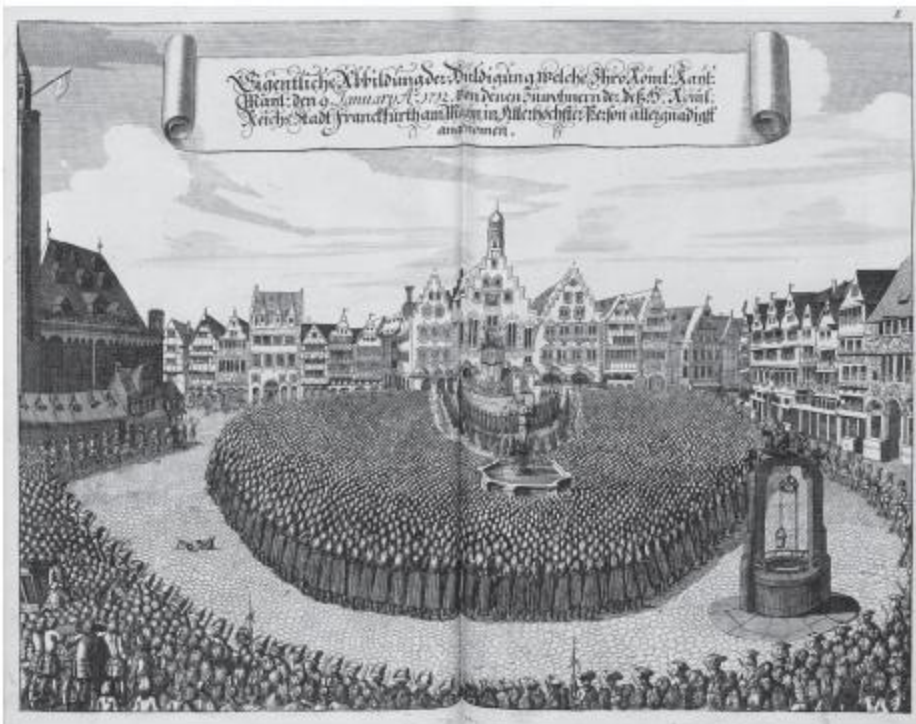 Eigentliche Abbildung der Huldigung welche Ihro Röml: Kaÿl:
Maÿt: den 9. January Aº. 1712. von denen Inwohnern der deß H. Röml.
Reichs Stadt Franckfurth am Mayn in Allerhöchster Person allergnädigst
angenomen.